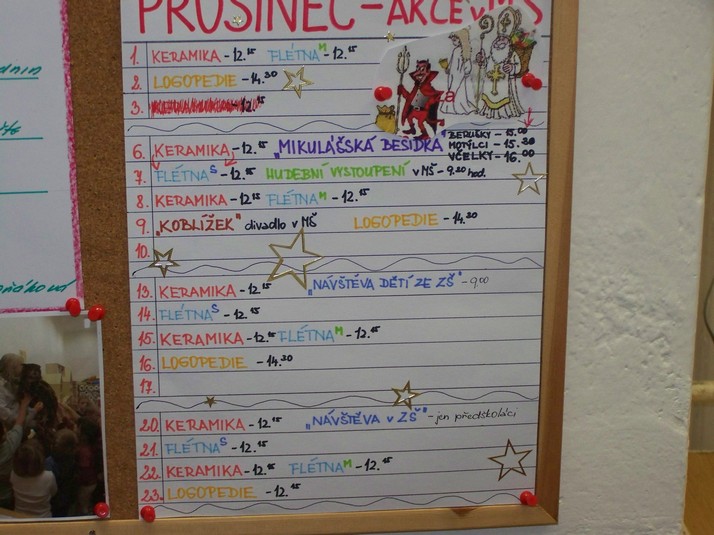 PROSINEC - AKCE V MŠ
1. KERAMIKA - 12.15 FLÉTNA M - 12.15
2. LOGOPEDIE - 14.30
3. 12.15
6. KERAMIKA - 12.15 „MIKULÁŠSKÁ BESÍDKA" BERUŠKY - 15.00
MOTÝLCI - 15.30
VČELKY - 16.00
7. FLÉTNA S - 12.15 HUDEBNÍ VYSTOUPENÍ v MŠ - 9.30 hod.
8. KERAMIKA - 12.15 FLÉTNA M - 12.15
9. „KOBLÍŽEK" divadlo v MŠ LOGOPEDIE - 14.30
10.
13. KERAMIKA - 12.15 „NÁVŠTĚVA DĚTÍ ZE ZŠ" - 9.00
14. FLÉTNA S - 12.15
15. KERAMIKA - 12.15 FLÉTNA M - 12.15
16. LOGOPEDIE - 14.30
17.
20. KERAMIKA - 12.15 „NÁVŠTĚVA v ZŠ" - jen předškoláci
21. FLÉTNA S - 12.15
22. KERAMIKA - 12.15 FLÉTNA M - 12.15
23. LOGOPEDIE - 12.15